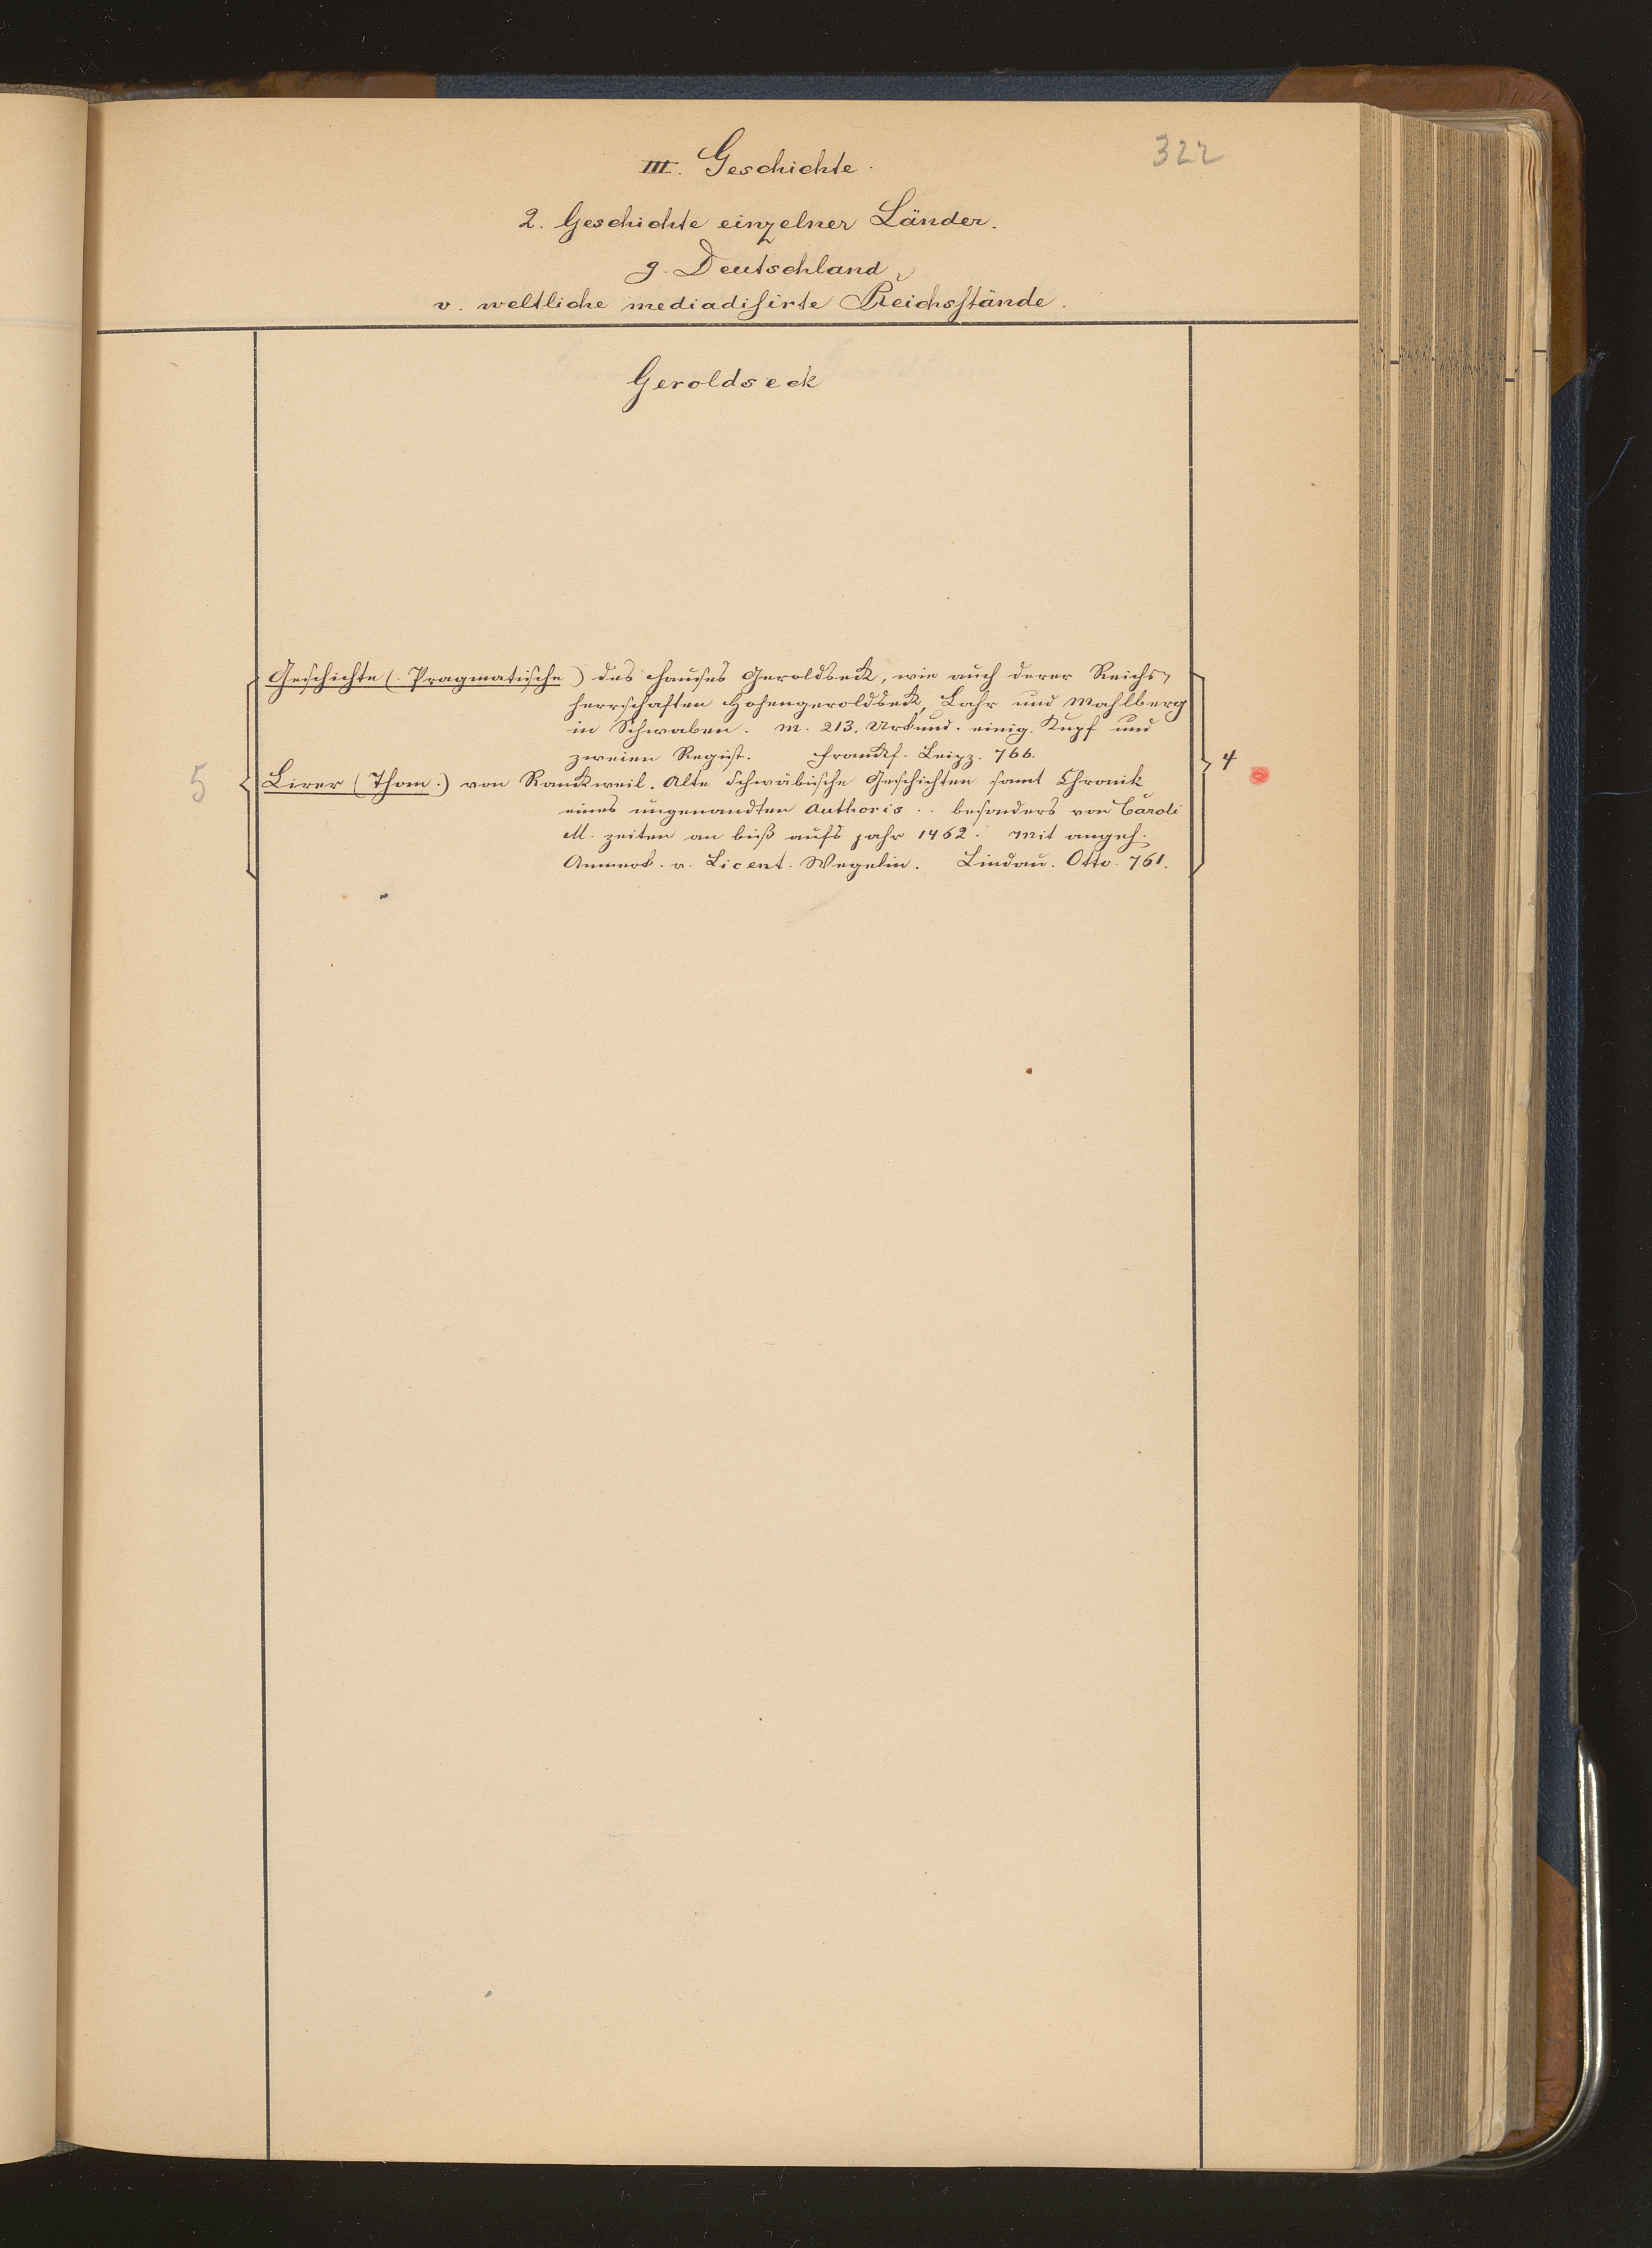 322
III. Geschichte.
2. Geschichte einzelner Länder.
g. Deutschland,
v. weltliche mediadisirte Reichsstände.
Geroldseck
Geschichte (Pragmatische) des Hauses Geroldseck, wie auch derer Reichs-
herrschaften Hohengeroldseck, Lahr und Mahlberg
in Schwaben. M. 213. Urkund. einig. Kupf und
zweien Regist. Franckf. Leipz. 766.
4
5
Lirer (Thom.) von Ranckweil. Alte Schwäbische Geschichten samt Chronik
eines ungenandten Authoris .. besonders von Caroli
M. zeiten an biß aufs jahr 1462. Mit angeh.
Anmerk. v. Licent. Wegelin. Lindau. Otto. 761.